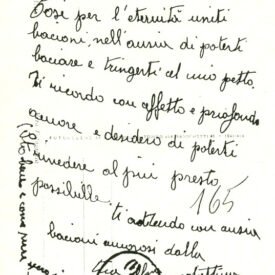 Così per l'eternità uniti
bacioni, nell'ansia di poterti
baciare e stringerti al mio petto.
Ti ricordo con affetto e profondo
amore e desidero di poterti
rivedere al più presto
possibille.
165
ti attendo con ansia
bacioni amorosi dalla
tua
(Sto bene e così pure